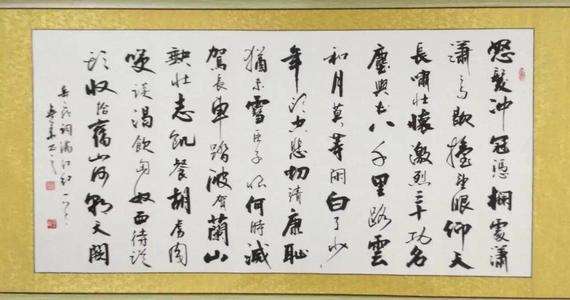 怒髮冲冠憑欄處瀟
瀟雨歇擡望眼仰天
長嘯壯懷激烈三十功名
塵與土八千里路雲
和月莫等閑白了少
年頭空悲切靖康恥
猶未雪臣子恨何時滅
駕長車踏破賀蘭山
缺壯志飢餐胡虜肉
笑談渴飲匈奴血待從
頭收拾舊山河朝天闕
岳飛詞滿江紅一首